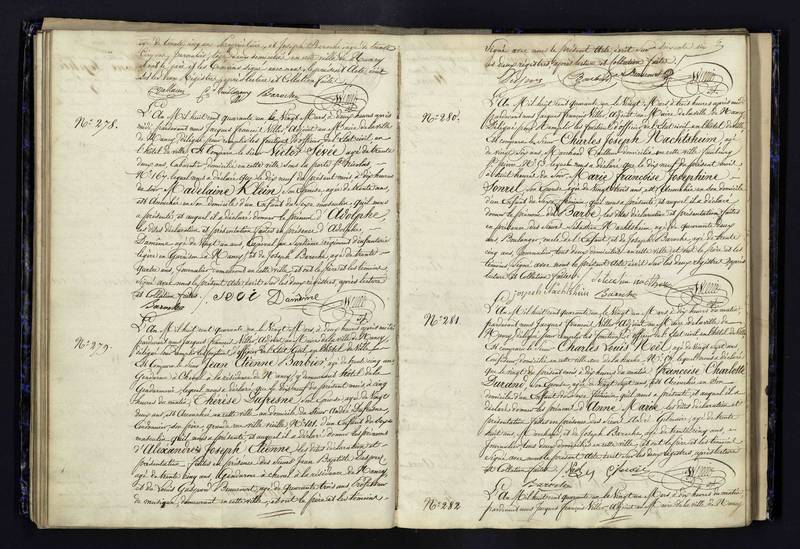 agé de trente cinq ans et Joseph Baroche, agé de trente
quatre ans, journalier, tous deux domiciliés en cette ville de Nancy
et ont le père et les témoins signé avec nous le présent acte, écrit
sur les deux registres, après lecture et Collation faites.
Baroche
N.º 278.
L'An Mil huit cent quarante un le Vingt Mars à deux heures après
midi, pardevant nous Jacques François Villier Adjoint au Maire de la ville
de Nancy, délégué pour remplir les fonctions d'officier de l'Etat civil, en
l'hôtel de ville
Est comparu le sieur Victor Sévée agé de trente
deux ans, domicilié en cette ville
N.º 167, lequel nous a déclaré que le dix neuf du présent mois à dix heures
du soir Madelaine Klein, son Epouse, agée de trente ans
est accouchée en son domicile d'un Enfant du sexe masculin, qu'il nous
a présenté, et auquel il a déclaré donner le prénom d'Adolphe,
les dites déclaration et présentation faites en présence d'Adolphe
Damême agé de Vingt six ans, Caporal au septième régiment d'infanterie
légère en Garnison à Nancy, et de Joseph Baroche, agé de trente
quatre ans, journalier demeurant en cette ville, et ont le père et les témoins
signé avec nous le présent acte écrit sur les deux registres, après lecture
et Collation faites.
Baroche
N.º 279.
L'An Mil huit cent quarante un le Vingt Mars, à deux heures après midi
pardevant nous Jacques François Villier Adjoint au Maire de la ville de
Nancy, délégué pour remplir les fonctions d'officier de l'Etat Civil, en l'hôtel de ville
Est comparu le sieur Jean Etienne Barbier agé de trente cinq ans
Gendarme à Cheval à la résidence de Nancy, y demeurant hôtel de la
Gendarmerie, lequel nous a déclaré, que le dix neuf du présent mois à cinq
heures du matin, Thérèse Dufresne son Epouse, agée de Vingt
deux ans, est accouchée en cette ville, au domicile du sieur André Dufresne,
Cordonnier, son père, grande rue ville vieille, N.º 121. d'un Enfant du sexe
masculin qu'il nous a présenté, et auquel il a déclaré donner les prénoms
d'Alexandre Joseph Etienne, les dites déclaration et
présentation, faites en présence des sieurs Jean Baptiste Desprez
agé de trente cinq ans, Gendarme à cheval à la résidence de Nancy
et de Louis Gaspard agé de quarante trois ans, Professeur
de musique, demeurant en cette ville, et ont le père et les témoins
Signé avec nous le présent Acte, écrit sur
les deux registres, après lecture et collation faites.
Desprez Barbier
N.º 280.
L'An Mil huit cent quarante un, le Vingt Mars à trois heures après midi
pardevant nous Jacques François Villier, Adjoint au Maire de la ville de Nancy,
délégué pour remplir les fonctions d'officier de l'Etat civil, en l'hôtel de ville
Est comparu le sieur Charles Joseph Wachtshein, agé
de Marchand domicilié en cette ville,
N.º 13, lequel nous a déclaré que le dix neuf du présent mois
à huit heures du soir Marie Françoise Joséphine
Sonrel, son Epouse, agée de Vingt huit ans, est accouchée en son domicile
d'un Enfant du sexe féminin, qu'il nous a présenté, et auquel il a déclaré
donner le prénom de Barbe, les dites déclaration et présentation faites
en présence des sieurs Sébastien Wachtshein, agé de quarante
ans, Boulanger, oncle de l'Enfant, et de Joseph Baroche, agé de trente
cinq ans, journalier, tous deux domiciliés en cette ville, et ont le père et les
témoins signé avec nous le présent Acte écrit sur les deux registres après
lecture et Collation faites.
Joseph Wachtshein Baroche
N.º 281.
L'An Mil huit cent quarante un, le Vingt un Mars à dix heures du matin,
pardevant nous Jacques François Villier Adjoint au Maire de la ville de
Nancy, délégué pour remplir les fonctions d'officier de l'Etat civil en l'hôtel de ville
Est comparu le sieur Charles Louis Noël, agé de Vingt sept ans,
Coiffeur, domicilié en cette ville, rue de la hache, N.º 79, lequel nous a déclaré
que le vingt du présent mois à dix heures du matin, Françoise Charlotte
Durand, son Epouse, agée de Vingt sept ans est accouchée en son
domicile d'un Enfant du sexe féminin, qu'il nous a présenté, et auquel il a
déclaré donner les prénoms d'Anne Marie, les dites déclaration et
présentation faites en présence des sieurs
huit ans, Marchand, et de Joseph Baroche, agé de trente cinq ans,
journalier, tous deux demeurant en cette ville, et ont le père et les témoins
signé avec nous le présent Acte écrit sur les deux registres après lecture
et Collation faites.
Baroche
N.º 282
L'An Mil huit cent quarante un, le Vingt un Mars à dix heures du matin,
pardevant nous Jacques François Villier Adjoint au Maire de la ville de Nancy,